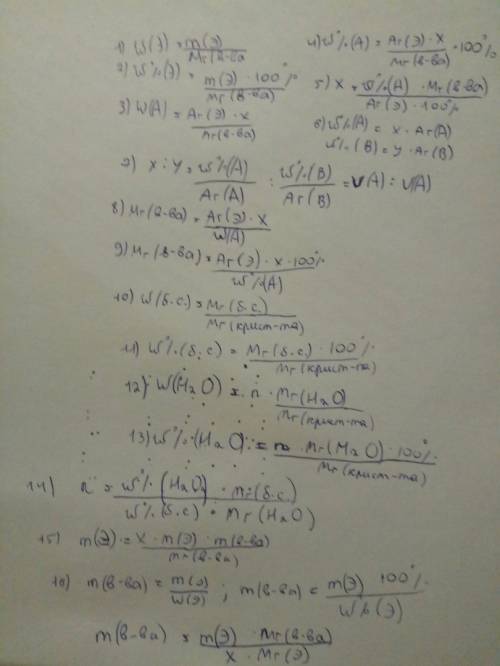 1) W(Э) = m(Э) / Mr(в-ва
2) W%(Э) = m(Э) · 100% / Mr(в-ва)
3) W(A) = Ar(Э) · x / Mr(в-ва)
4) W%(A) = Ar(Э) · X / Mr(в-ва) · 100%
5) X = W%(A) · Mr(в-ва) / Ar(Э) · 100%
6) W%(A) = x · Ar(A)
W%(B) = y · Ar(B)
7) X : Y = W%(A) / Ar(A) : W%(B) / Ar(B) = ν(A) : ν(A)
8) Mr(в-ва) = Ar(Э) · X / W(A)
9) Mr(в-ва) = Ar(Э) · x · 100% / W%(A)
10) W(б.с.) = Mr(б.с.) / Mr(крист-та)
11) W%(б.с) = Mr(б.с.) · 100% / Mr(крист-та)
12) W(H2O) = n · Mr(H2O) / Mr(крист-та)
13) W%(H2O) = n · Mr(H2O) · 100% / Mr(крист-та)
14) n = W%(H2O) · Mr(б.с.) / W%(б.с) · Mr(H2O)
15) m(Э) = x · m(Э) · m(в-ва) / Mr(в-ва)
16) m(в-ва) = m(Э) / W(Э) ; m(в-ва) = m(Э) · 100% / W%(Э)
m(в-ва) = m(Э) · Mr(в-ва) / X · Mr(Э)